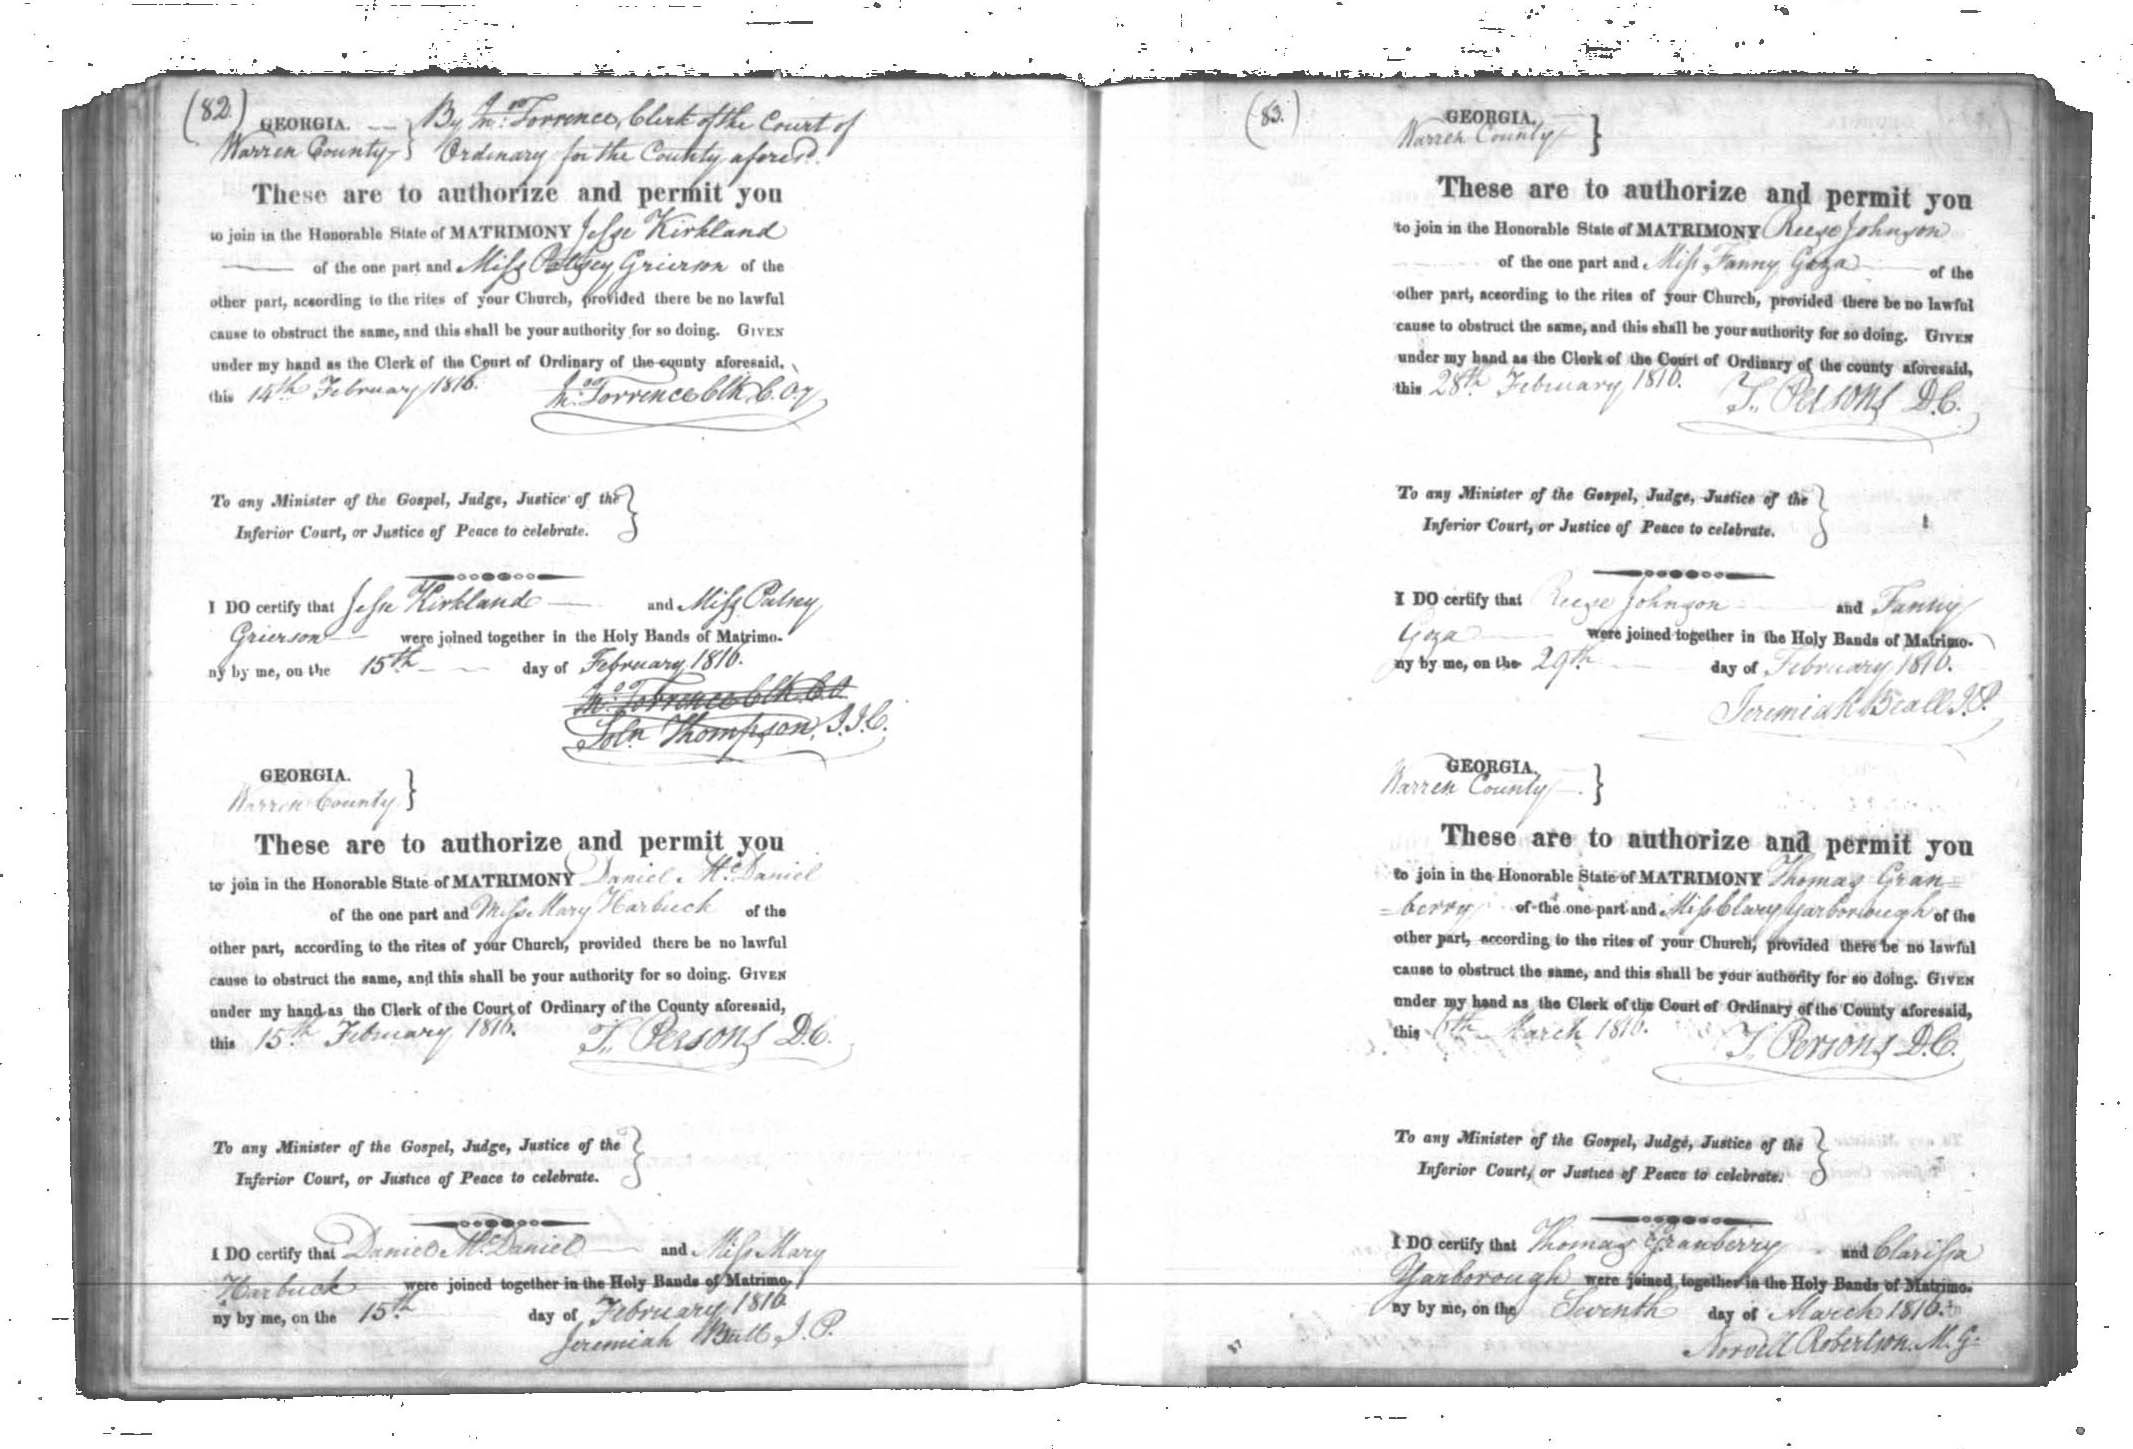 (82)
GEORGIA. By Jno. Torrence, Clerk of the Court of
Warren County } Ordinary for the County afores'd.
These are to authorize and permit you
to join in the Honorable State of MATRIMONY Jesse Kirkland
of the one part and Miss Patsey Grierson of the
other part, according to the rites of your Church, provided there be no lawful
cause to obstruct the same, and this shall be your authority for so doing. GIVEN
under my hand as the Clerk of the Court of Ordinary of the county aforesaid,
this 14th February 1816. Jno. Torrence Clk C.O.
To any Minister of the Gospel, Judge, Justice of the }
Inferior Court, or Justice of Peace to celebrate.
I DO certify that Jesse Kirkland and Miss Patsey
Grierson were joined together in the Holy Bands of Matrimo-
ny by me, on the 15th day of February 1816.
Jno. Torrence Clk. C.O.
Soln. Thompson, J.I.C.
GEORGIA. }
Warren County
These are to authorize and permit you
to join in the Honorable State of MATRIMONY Daniel McDaniel
of the one part and Miss Mary Harbuck of the
other part, according to the rites of your Church, provided there be no lawful
cause to obstruct the same, and this shall be your authority for so doing. GIVEN
under my hand as the Clerk of the Court of Ordinary of the County aforesaid,
this 15th February 1816. T. Persons D.C.
To any Minister of the Gospel, Judge, Justice of the }
Inferior Court, or Justice of Peace to celebrate.
I DO certify that Daniel McDaniel and Miss Mary
Harbuck were joined together in the Holy Bands of Matrimo-
ny by me, on the 15th day of February 1816
Jeremiah J.P.
(83.)
GEORGIA. }
Warren County
These are to authorize and permit you
to join in the Honorable State of MATRIMONY Reese Johnson
of the one part and Miss Fanny Goza of the
other part, according to the rites of your Church, provided there be no lawful
cause to obstruct the same, and this shall be your authority for so doing. GIVEN
under my hand as the Clerk of the Court of Ordinary of the county aforesaid,
this 28th February 1816. T. Persons D.C.
To any Minister of the Gospel, Judge, Justice of the }
Inferior Court, or Justice of Peace to celebrate.
I DO certify that Reese Johnson and Fanny
Goza were joined together in the Holy Bands of Matrimo-
ny by me, on the 29th day of February 1816.
Jeremiah Beall J.P.
GEORGIA. }
Warren County
These are to authorize and permit you
to join in the Honorable State of MATRIMONY Thomas Gran=
=berry of the one part and Miss Clary Yarborough of the
other part, according to the rites of your Church, provided there be no lawful
cause to obstruct the same, and this shall be your authority for so doing. GIVEN
under my hand as the Clerk of the Court of Ordinary of the County aforesaid,
this 6th March 1816. T. Persons D.C.
To any Minister of the Gospel, Judge, Justice of the }
Inferior Court, or Justice of Peace to celebrate.
I DO certify that Thomas Granberry and Clarissa
Yarborough were joined together in the Holy Bands of Matrimo-
ny by me, on the Seventh day of March 1816.
Norvell Robertson M.G.